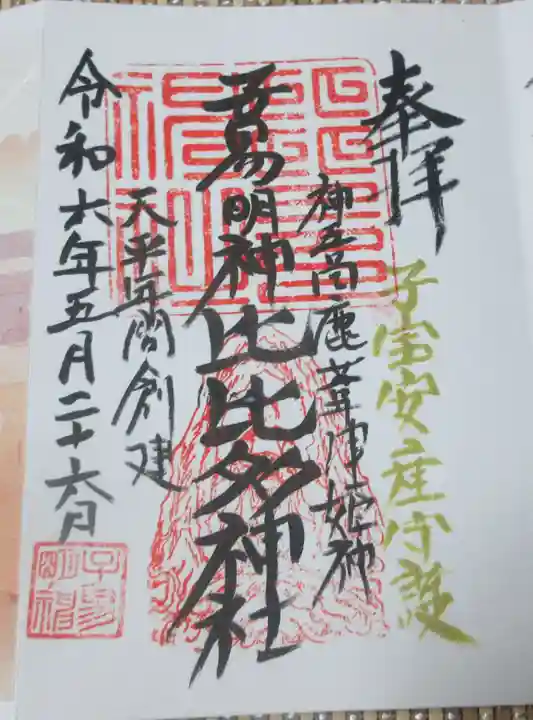 奉拝
子宝安産守護
神吾高鹿葦津姫神
子易明神比比多神社
天平年間創建
令和六年五月二十六日
子易明神